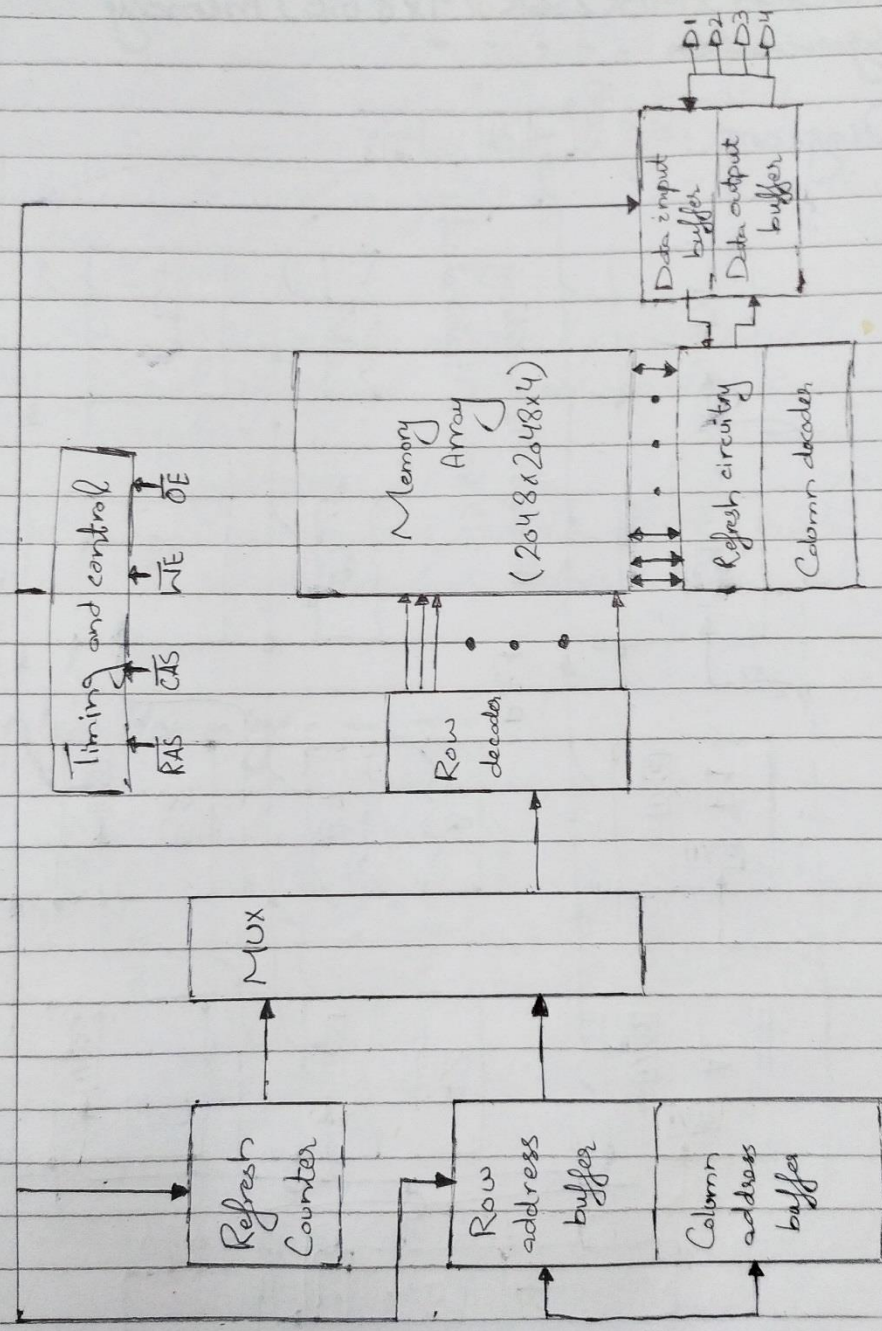 Timing and control
R̅A̅S̅ C̅A̅S̅ W̅E̅ O̅E̅
Refresh
Counter
MUX
Row
address
buffer
Column
address
buffer
Row
decoder
Memory
Array
(2048x2048x4)
Refresh circuitry
Column decoder
Data input
buffer
Data output
buffer
D1
D2
D3
D4